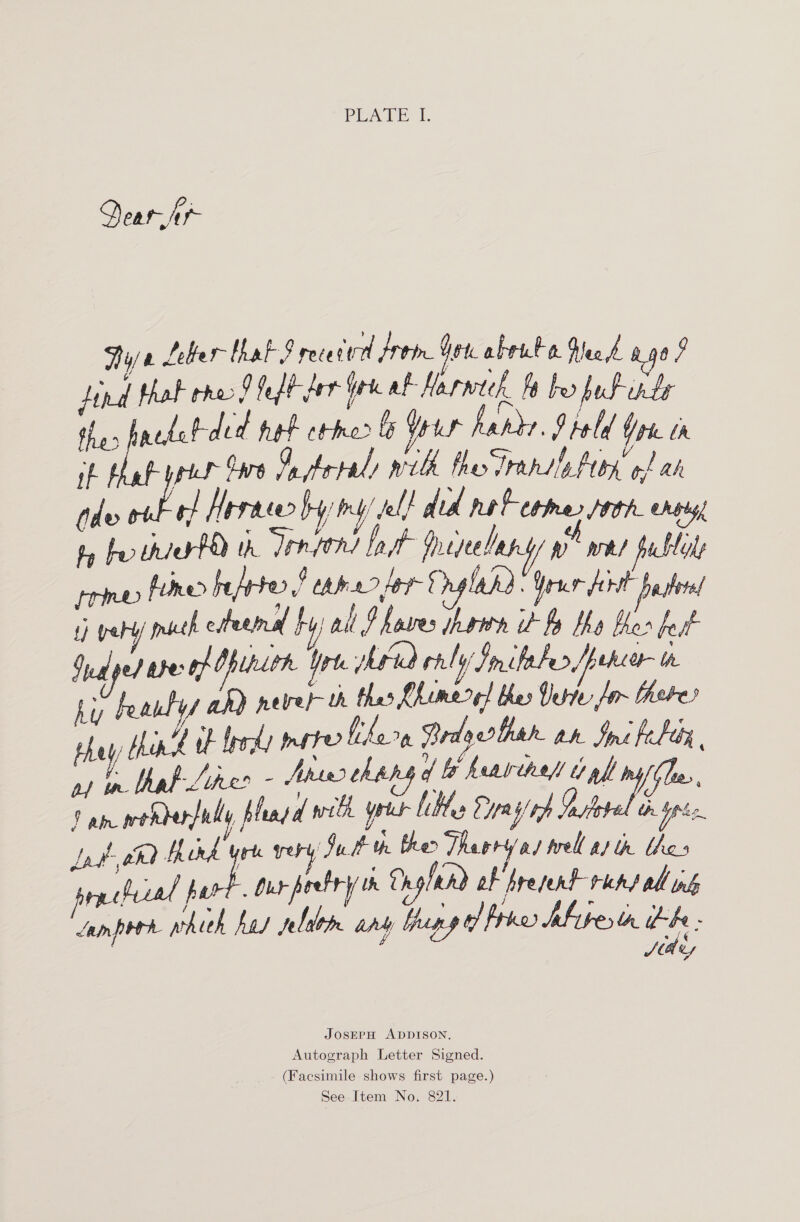 PLATE I.
Dear Sir
By a Letter that I receiv'd from You about a Week ago I
find that one I left for You at Harwich to be put into
the packet did not come to Your hands. I told You in
it that your two Pastorals with the Translation of an
Ode out of Horace by my self did not come soon enough
to be inserted in Tonsons last Miscellany wch was publish
some time before I came for England. Your first pastoral
is very much esteem'd by all I have shown it to tho the best
Judges are of Opinion You shoud only Imitate Spencer in
his beautys and never in the Rhime of the Verse for there
they think it looks more like a Bodge than an Imitation,
as in that Line -
I am wonderfully pleas'd with your little Essay of Pastoral in your
last and think you very Just in the Theory as well as in the
practical part. Our poetry in England at present runs all into
Lampoon which has seldom any thing of true Satire in it be-
sides
JOSEPH ADDISON.
Autograph Letter Signed.
(Facsimile shows first page.)
See Item No. 821.